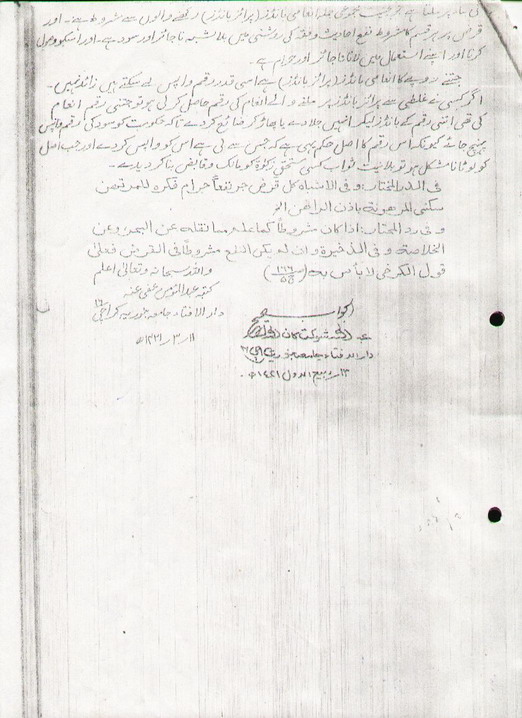 کی بناء پر ملتا ہے جو جمیع انعامی بانڈز (پرائز بانڈز) رکھنے والوں سے مشروط ہے۔ اور
قرض پر ہر قسم کا مشروط نفع احادیث و فقہ کی روشنی میں بلاشبہ ناجائز اور سود ہے۔ اور اسکو وصول
کرنا اور اپنے استعمال میں لانا ناجائز اور حرام ہے۔
جتنے روپے کا انعامی بانڈز (پرائز بانڈز) ہے اسی قدر رقم واپس لے سکتے ہیں زائد نہیں۔
اگر کسی نے غلطی سے پرائز بانڈز پر ملنے والے انعام کی رقم حاصل کر لی ہو تو جتنی رقم انعام
کی تھی اتنی رقم کے بانڈز لیکر انہیں جلا دے یا پھاڑ کر ضائع کر دے تاکہ حکومت کو سود کی رقم واپس
پہنچ جائے کیونکہ اس رقم کا اصل حکم یہی ہے کہ جس سے لی ہے اس کو واپس کر دے اور جب اصل
کو لوٹانا مشکل ہو تو بلانیت ثواب کسی مستحق زکوٰۃ کو مالک و قابض بنا کر دیدے۔
فی الدر المختار: وفی الاشباہ کل قرض جر نفعاً حرام فکرہ للمرتھن
سکنی المرھونۃ باذن الراھن الخ
و فی رد المختار: اذا کان مشروطاً کما علم مما نقلہ عن البحر وعن
الخلاصۃ و فی الذخیرۃ وان لم یکن النفع مشروطاً فی القرض فعلی
قول الکرخی لا باس بہ (۱۶۶/ج۵)
واللہ سبحانہ وتعالیٰ اعلم
کتبہ عبد عفی عنہ
دار الافتاء جامعہ کراچی
۱۱ / ۳ / ۱۴۲۱ھ
الجواب صحیح
دار الافتاء جامعہ
۱۳ ربیع الاول ۱۴۲۱ھ